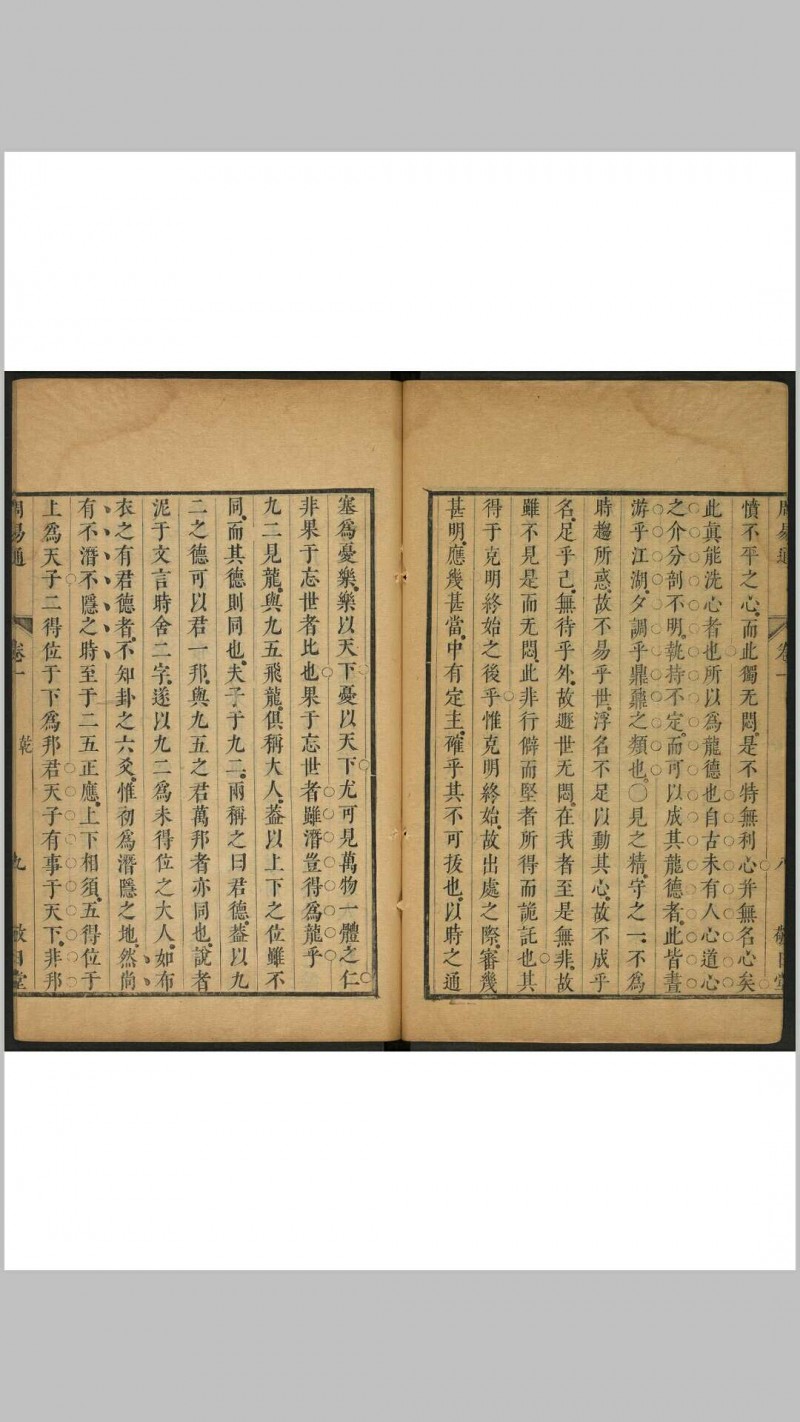 周易通 卷一 八 敬日堂
憤不平之心而此獨无悶是不特無利心并無名心矣
此真能洗心者也所以爲龍德也自古未有人心道心
之介分剖不明執持不定而可以成其龍德者此皆晝
游乎江湖夕調乎鼎鼐之類也○見之精守之一不爲
時趨所惑故不易乎世浮名不足以動其心故不成乎
名足乎己無待乎外故遯世无悶在我者至是無非故
雖不見是而无悶此非行僻而堅者所得而詭託也其
得于克明終始之後乎惟克明終始故出處之際審幾
甚明應幾甚當中有定主確乎其不可拔也以時之通
塞爲憂樂樂以天下憂以天下尤可見萬物一體之仁
非果于忘世者比也果于忘世者雖潛豈得爲龍乎
九二見龍與九五飛龍俱稱大人葢以上下之位雖不
同而其德則同也夫子于九二兩稱之曰君德葢以九
二之德可以君一邦與九五之君萬邦者亦同也說者
泥于文言時舍二字遂以九二爲未得位之大人如布
衣之有君德者不知卦之六爻惟初爲潛隱之地然尚
有不潛不隱之時至于二五正應上下相須五得位于
上爲天子二得位于下爲邦君天子有事于天下非邦
周易通 卷一 乾 九 敬日堂